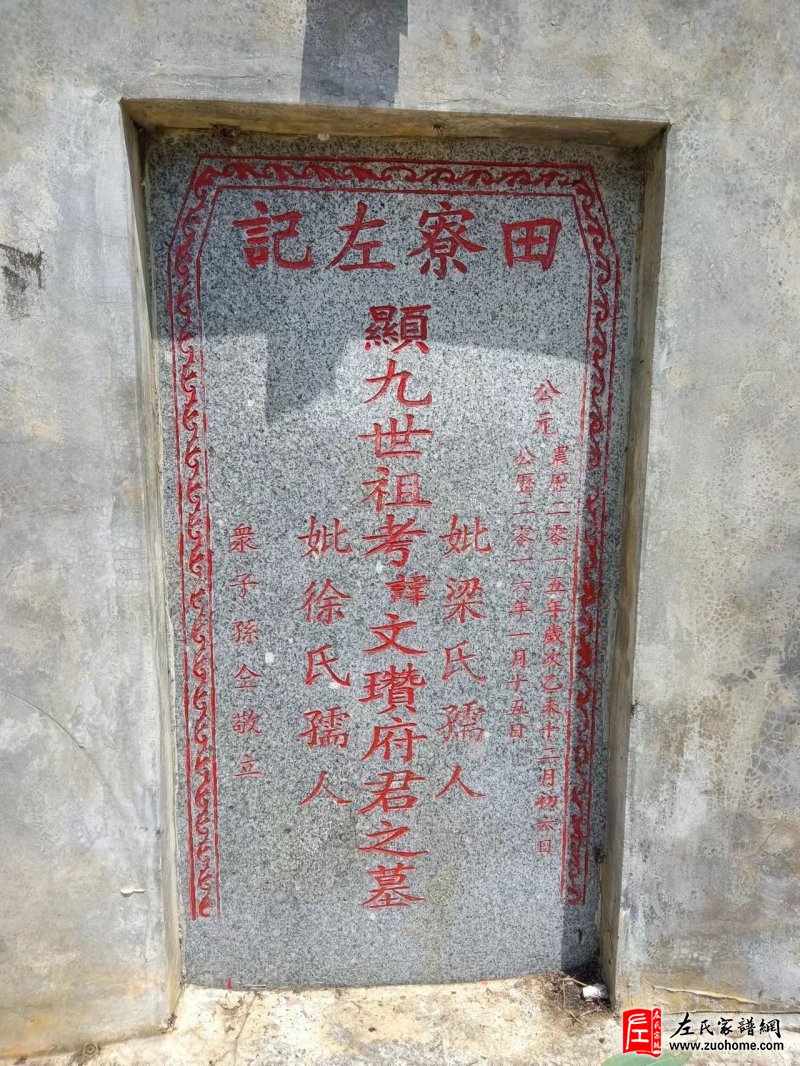 田寮左記
公元
農歷二零一五年歲次乙未十二月初六日
公歷二零一六年一月十五日
妣梁氏孺人
顯九世祖考諱文瓚府君之墓
妣徐氏孺人
衆子孫仝敬立
左氏宗親
左氏家譜網
www.zuohome.com